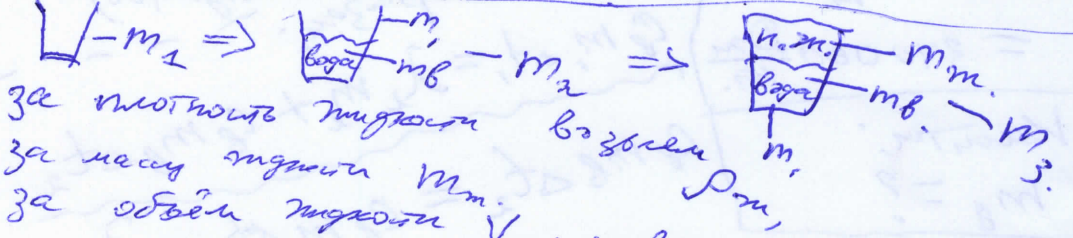 m₁ ⇒ вода m₁ mв m₂ ⇒ н.ж. вода mж. mв. m₁ m₃.
за плотность жидкости возьмем ρж,
за массу жидкости mж.
за объём жидкости V